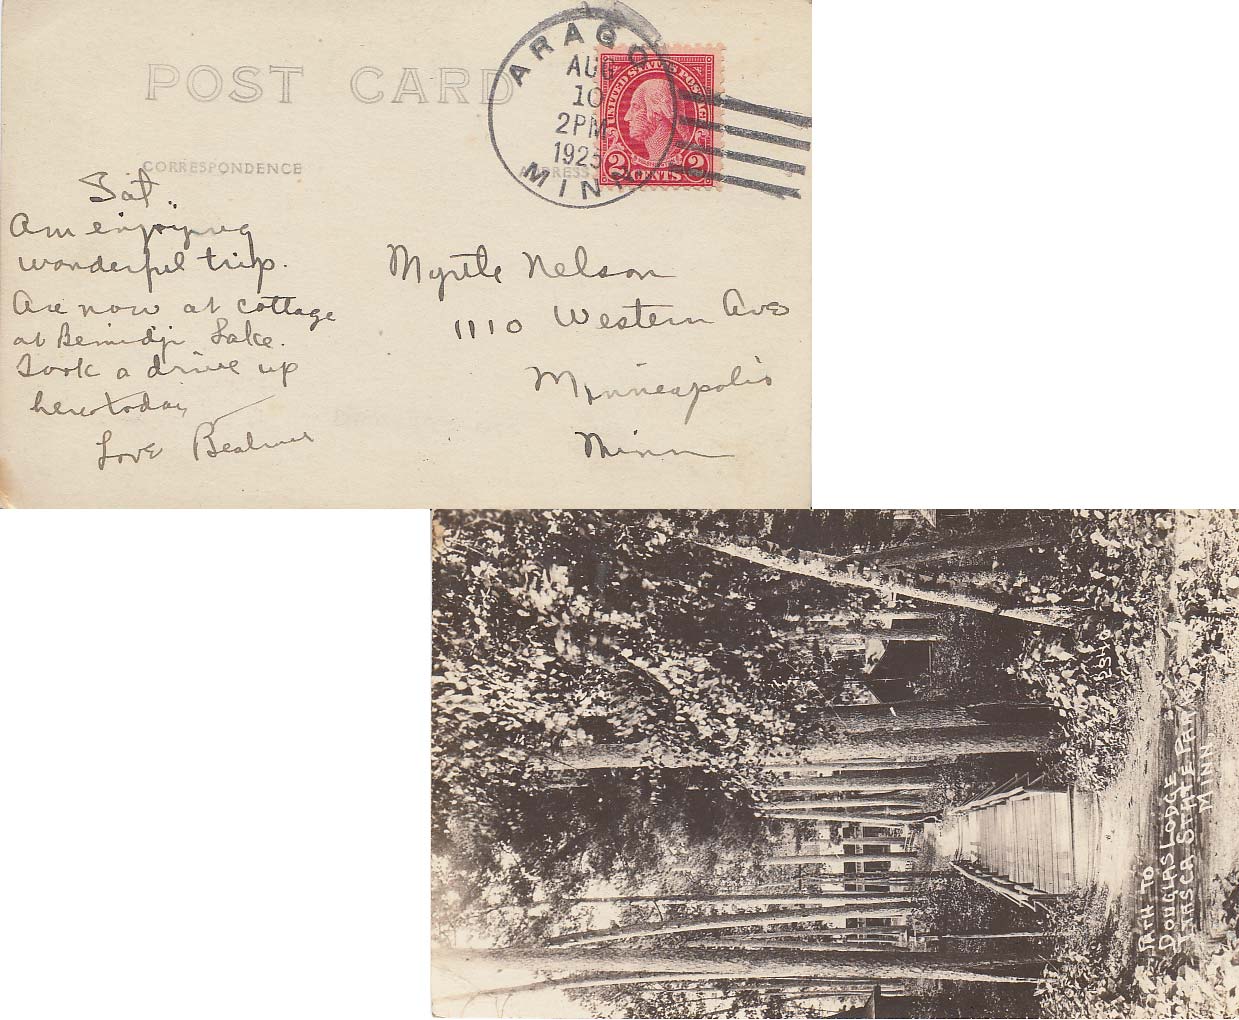 POST CARD
ARAGO
AUG
10
2PM
1925
MINN
UNITED STATES POSTAGE
2 CENTS 2
CORRESPONDENCE
Sat.
Am enjoying
wonderful trip.
Are now at cottage
at Bemidji Lake.
Took a drive up
here today
Love
Myrtle Nelson
1110 Western Ave
Minneapolis
Minn
PATH TO
DOUGLAS LODGE
ITASCA STATE PARK
MINN